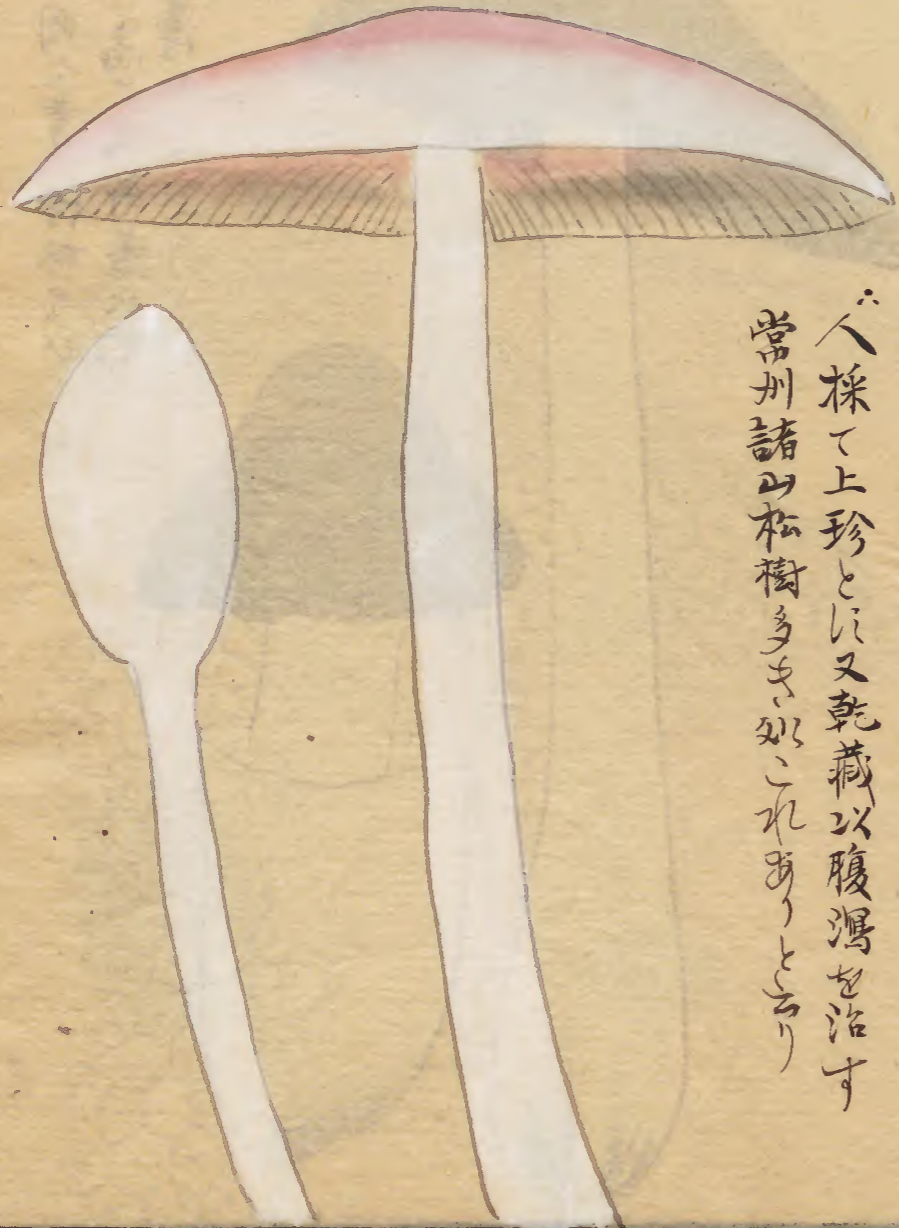 人採て上珍とす又乾蔵以腹瀉を治す
常州諸山松樹多き処これありと云り